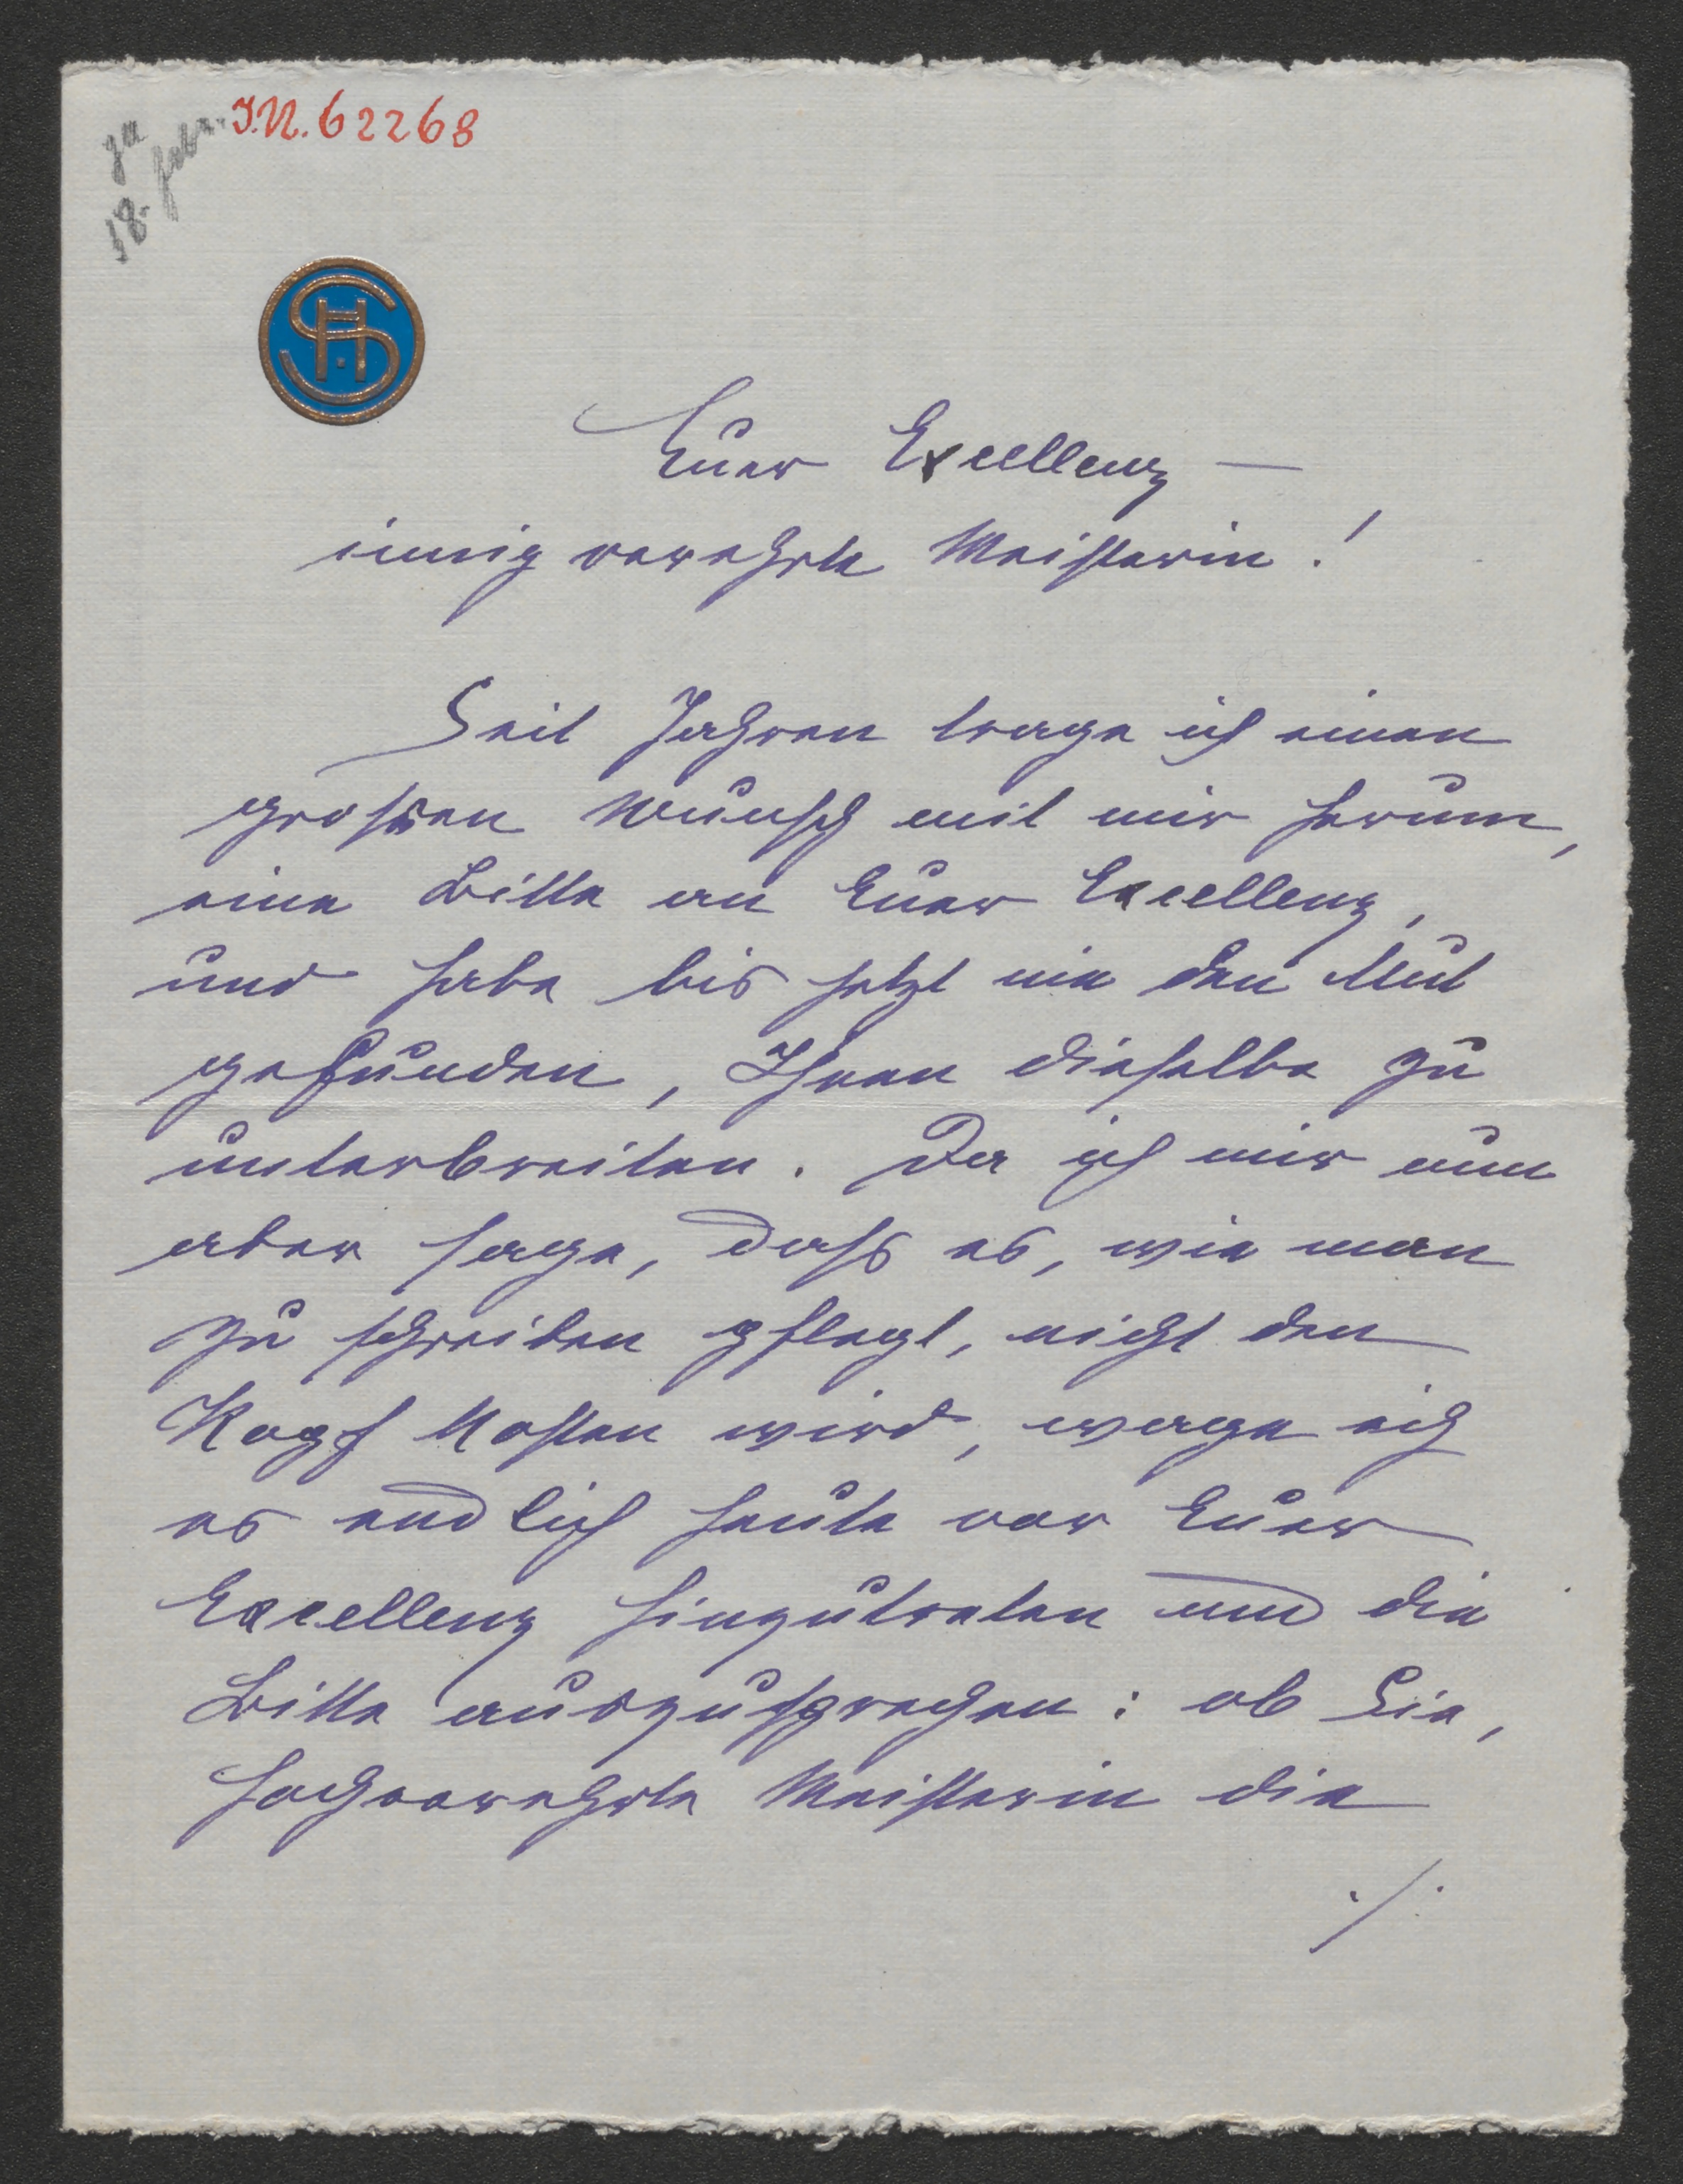 J.N. 62268
ja
18. Febr.
SH
Euer Excellenz —
innig verehrte Meisterin!
Seit Jahren trage ich einen
grossen Wunsch mit mir herum,
eine Bitte an Euer Excellenz,
und habe bis jetzt nie den Mut
gefunden, Ihnen dieselbe zu
unterbreiten. Da ich mir nun
aber sage, dass es, wie man
zu schreiben pflegt, nicht den
Kopf kosten wird, wage ich
es endlich heute vor Euer
Excellenz hinzutreten und die
Bitte auszusprechen: ob Sie,
hochverehrte Meisterin die
./.